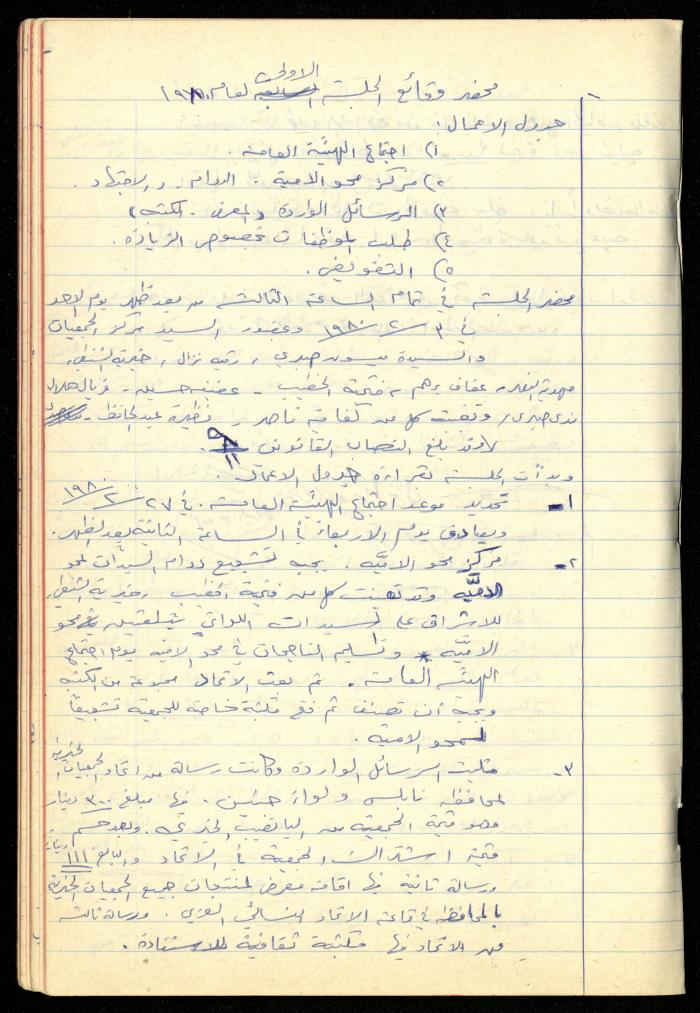 محضر وقائع الجلسة الاولى لعام ١٩٨٠
جدول الاعمال :
١) اجتماع الهيئة العامة .
٢) مركز محو الامية . الدوام , والاجتهاد .
٣) الرسائل الواردة والمعرض . المكتبة ,
٤) طلب الموظفات بخصوص الزيادة .
٥) التفويض .
محضر الجلسة في تمام الساعة الثالثة من بعد ظهر يوم الاحد
في ٣ /٢/ ١٩٨٠ وبحضور السيد مركز الجمعيات
والسيدة ميسون صبري , رقيه نزال , خيرية الشنطي ,
عفاف برهم , فتحية الخطيب - عفيفه - فريال هلال
ندى صبري , وتغيبت كل من كفاية ناصر , نظيرة عبد الحافظ -
وقد بلغ النصاب القانوني ٩/١١ .
وبدأت الجلسة لقراءة جدول الاعمال
١- تحديد موعد اجتماع الهيئة العامة . في ٢٧ /٢/ ١٩٨٠
ويصادف يوم الاربعاء في الساعة الثانية بعد الظهر .
٢- مركز محو الاميّة . يجب تشجيع دوام السيدات لمحو
الاميّة وقد تعينت كل من فتحية الخطيب , خيرية الشنطي ,
للاشراف على السيدات اللواتي محو
الاميّة * وتسليم الناجحات في محو الامية يوم اجتماع
الهيئة العامة . ثم بعث الاتحاد مجموعة من الكتب
ويجب أن تصنف ثم فتح مكتبة خاصة للجمعية تشجيعاً
لمحو الامية .
٣- تليت الرسائل الواردة وكانت رسالة من اتحاد الجمعيات الخيرية
لمحافظة نابلس ولواء جنين . فيها مبلغ ٣٠٠ دينار
وهو قيمة الجمعية من اليانصيب الخيري . وبعد حسم
قيمة اشتراك الجمعية في الاتحاد والبالغ ١١١ دينار
ورسالة ثانية فيها اقامة معرض لمنتجات جميع الجمعيات الخيرية
بالمحافظة في قاعة الاتحاد النسائي العربي . ورسالة ثالثة
من الاتحاد فيها مكتبة ثقافية للاستفادة .